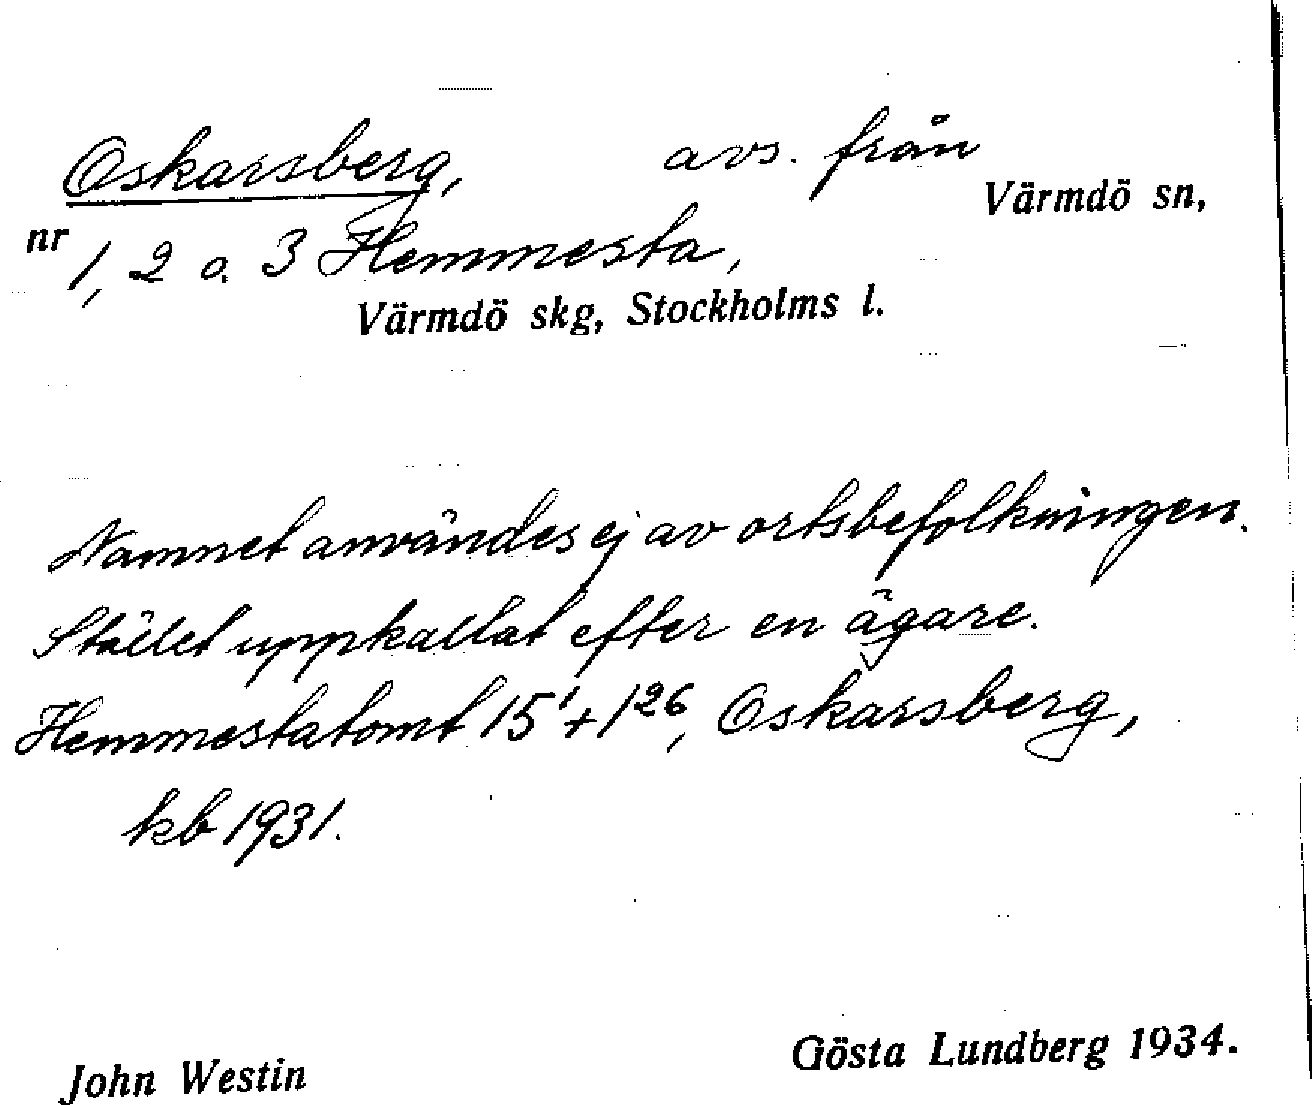 Oskarsberg, avs. från
Värmdö sn,
nr 1, 2 o. 3 Hemmesta,
Värmdö skg, Stockholms l.
Namnet användes ej av ortsbefolkningen.
Stället uppkallat efter en ägare.
Hemmestatomt 15¹+1²⁶, Oskarsberg,
kb 1931.
John Westin
Gösta Lundberg 1934.